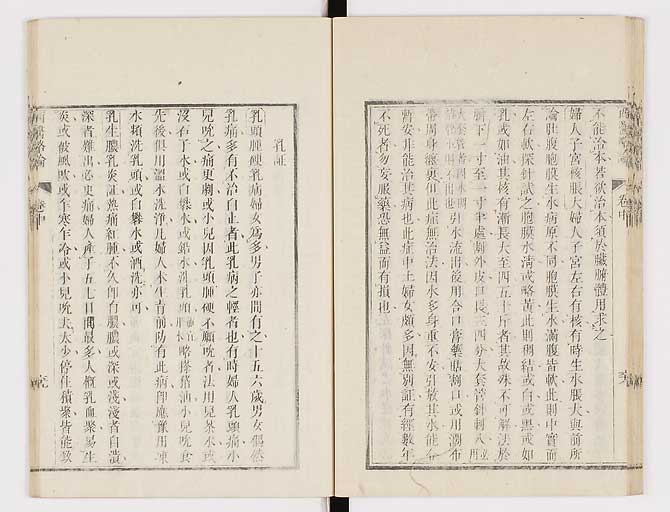 不能治本若欲治本須於臟腑體用求之
婦人子宮核脹大婦人子宮左右有核有時生水脹大與前所
論肚腹胞膜生水病原不同胞膜生水滿腹皆軟此則中實而
左右軟探針試之胞膜水淸或略黃此則稠結或白或黑或如
乳或如油其核有漸長大至四五十斤者其故殊不可解法於
臍下一寸至一寸半處外皮口長三四分大套管針刺入用
大套管者因水稠
引水流出後用合口膏藥貼口或用濶布
帶周身纏裹但此症無治法因水多身重不安引放其水能令
暫安非能治其病也此症中土婦女頗多因無別証有經數年
不死者勿妄服藥恐無益而有損也
西醫略論
卷中
乳証
乳頭腫硬乳病婦女爲多男子亦間有之十五六歲男女偶然
乳痛多有不治自止者此乳病之輕者也有時婦人乳頭痛小
兒吮之痛更劇或小兒因乳頭腫硬不願吮者法用兒茶水或
沒石子水或白礬水或鉛水洗乳頭略搽猪油小兒吮食
先後俱用溫水洗淨凡婦人未生育前防有此病卽應豫用凍
水頻洗乳頭或白礬水或酒洗亦可
乳生膿乳炎証熱痛紅腫不久卽有膿膿或深或淺淺者自潰
深者難出必更痛婦人產子五七日間最多人乳血聚易生
炎或被風吹或乍寒乍冷或小兒吮太少停住積聚皆能致
西醫略論
卷中